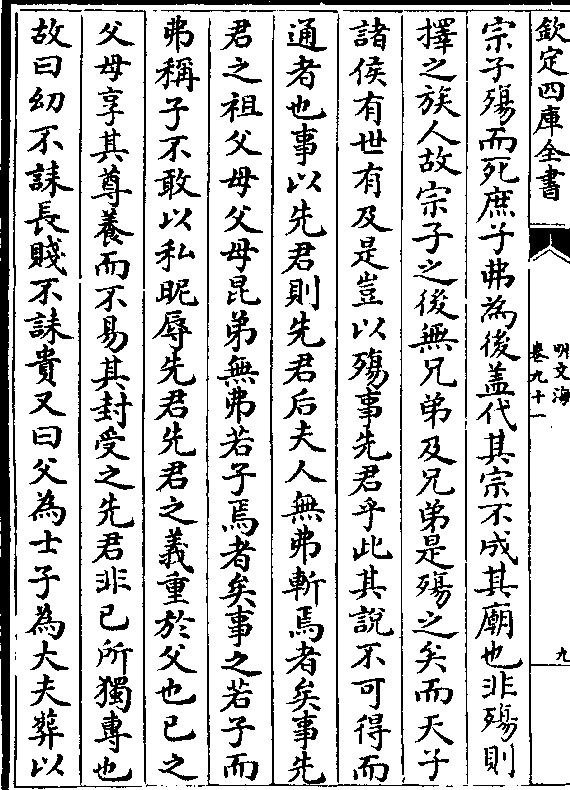 欽定四庫全書
明文海
卷九十一
九
宗子殤而死庶子弗為後蓋代其宗不成其廟也非殤則
擇之族人故宗子之後無兄弟及兄弟是殤之矣而天子
諸侯有世有及是豈以殤事先君乎此其說不可得而
通者也事以先君則先君后夫人無弗斬焉者矣事先
君之祖父母父母昆弟無弗若子焉者矣事之若子而
弗稱子不敢以私昵辱先君先君之義重於父也已之
父母享其尊養而不易其封受之先君非已所獨專也
故曰幼不誄長賤不誄貴又曰父為士子為大夫葬以